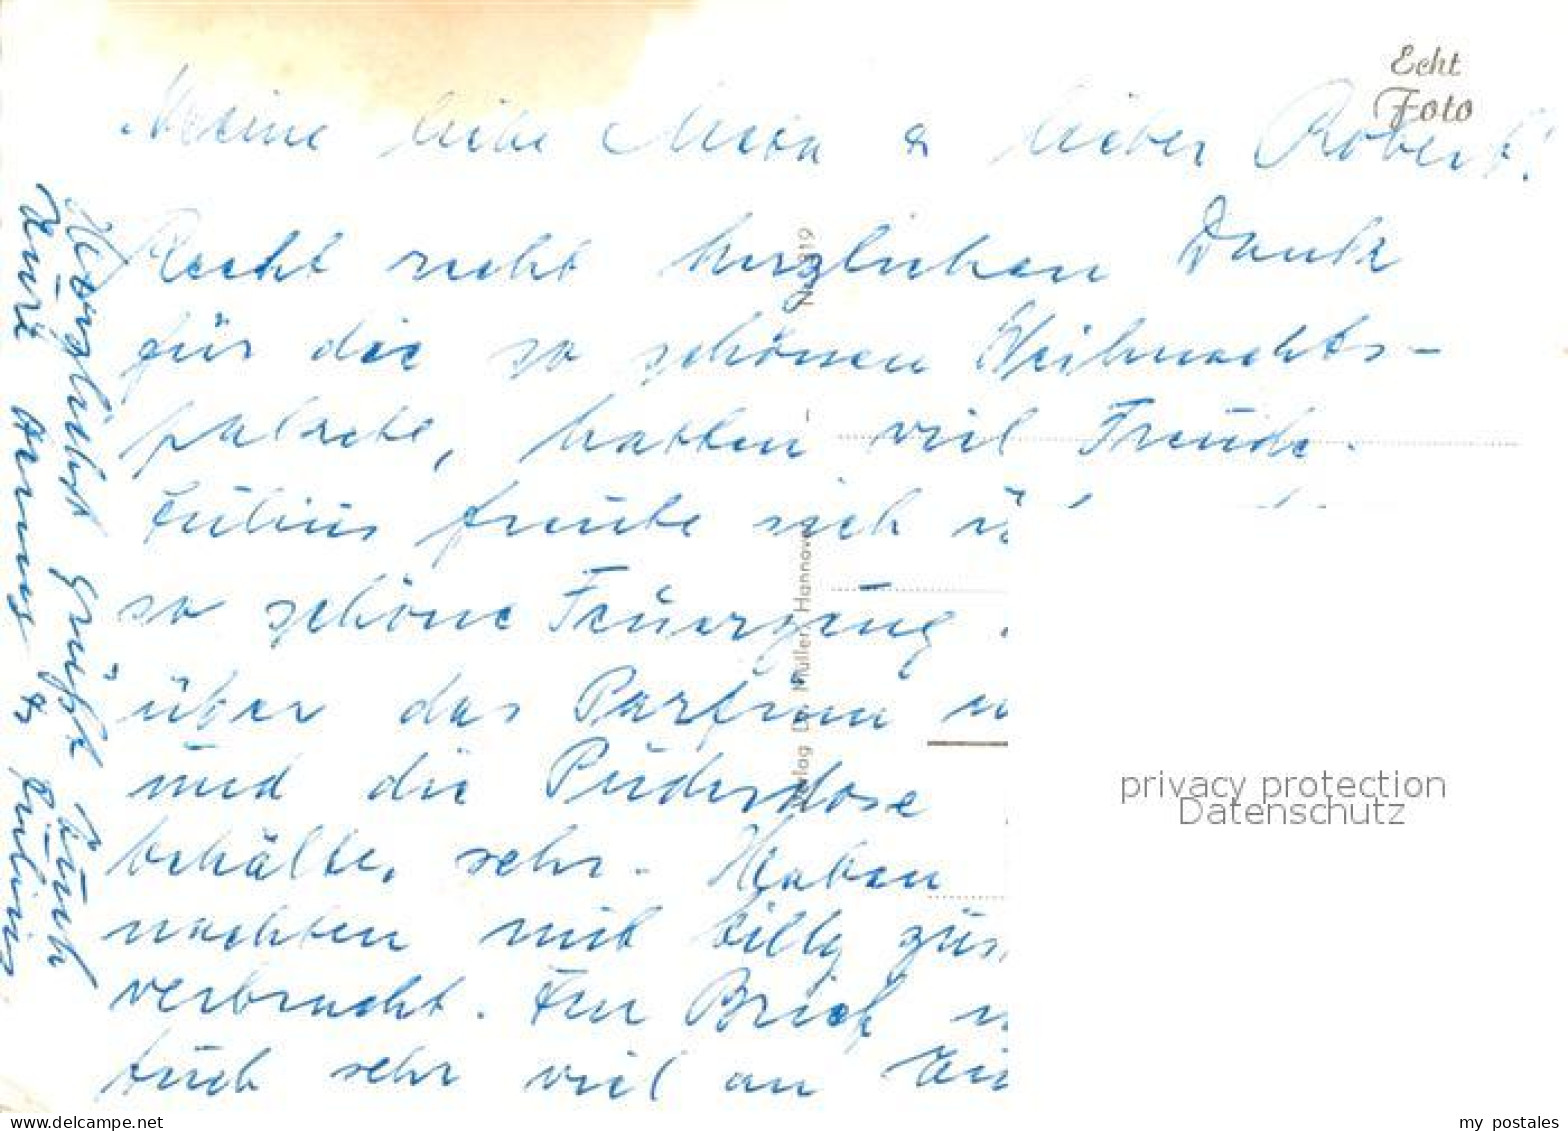 Echt
Foto
Meine liebe Meta & lieber Robert!
Recht recht herzlichen Dank
für die so schönen Weihnachts-
pakete, hatten viel Freude.
Julius freute sich
so schöne Feuerzeug
über das Parfum
und die Puderdose
sehr. Haben
nachten mit Tilly
verbracht. Brief
Euch sehr viel an
Herzlichst grüßt Euch
Eure & Julius
Müller, Hannover
privacy protection
Datenschutz
delcampe.net
my_postales